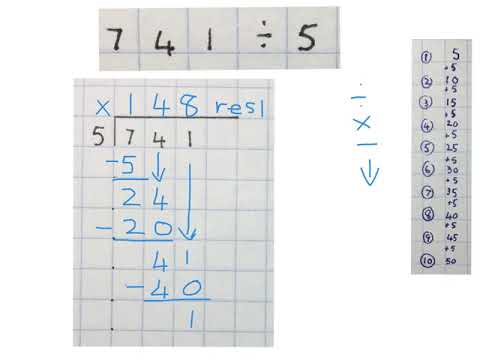 7 4 1 ÷ 5
x 1 4 8 res1
5 7 4 1
-5 ↓
2 4
- 2 0 ↓
4 1
- 4 0
1
÷
x
-
↓
① 5
+5
② 10
+5
③ 15
+5
④ 20
+5
⑤ 25
+5
⑥ 30
+5
⑦ 35
+5
⑧ 40
+5
⑨ 45
+5
⑩ 50